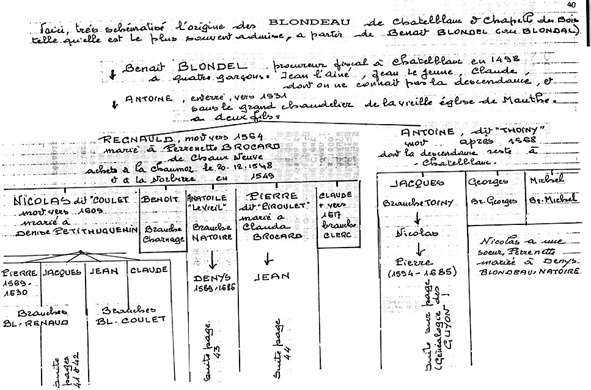 40
Voici, très schématisé l'origine des BLONDEAU de Chatelblanc & Chapelle des Bois
telle qu'elle est le plus souvent admise, a partir de Benoit BLONDEL (ou BLONDAL)
Benoit BLONDEL, procureur fiscal à Chatelblanc en 1498
a quatre garçons. Jean l'ainé, Jean le jeune, Claude,
dont on ne connait pas la descendance, et
ANTOINE, enterré, vers 1531
sous le grand chandelier de la vieille église de Mouthe.
a deux fils.
REGNAULD, mort vers 1564
marié à Perrenette BROCARD
de Chaux Neuve
achete à la Chaumoz le 20.12.1548
et à la Norbière en 1549
ANTOINE, dit "THOINY"
mort après 1568
dont la descendance reste à
Chatelblanc.
NICOLAS dit "COULET
mort vers 1609
marié à
Denise PETITHUGUENIN
BENOIT
Branche
Charnage
ANATOILE
"Leviel"
Branche
NATOIRE
PIERRE
dit "PIROULET"
marié a
Clauda
BROCARD
CLAUDE
+ vers
1617
branche
CLERC
JACQUES
Branche TOINY
Georges
Br. Georges
Michel
Br. Michel
Nicolas
Pierre
(1594-1685)
Nicolas a une
soeur, Perrenette
mariée à Denys
BLONDEAU-NATOIRE
PIERRE
1569-
1630
JACQUES
JEAN
CLAUDE
Branches
BL-RENAUD
Branches
BL. COULET
DENYS
1589-1686
JEAN
suite
pages
41 & 42
suite page
43
suite page
44
suite sur page
(Généalogie des
GUYON)